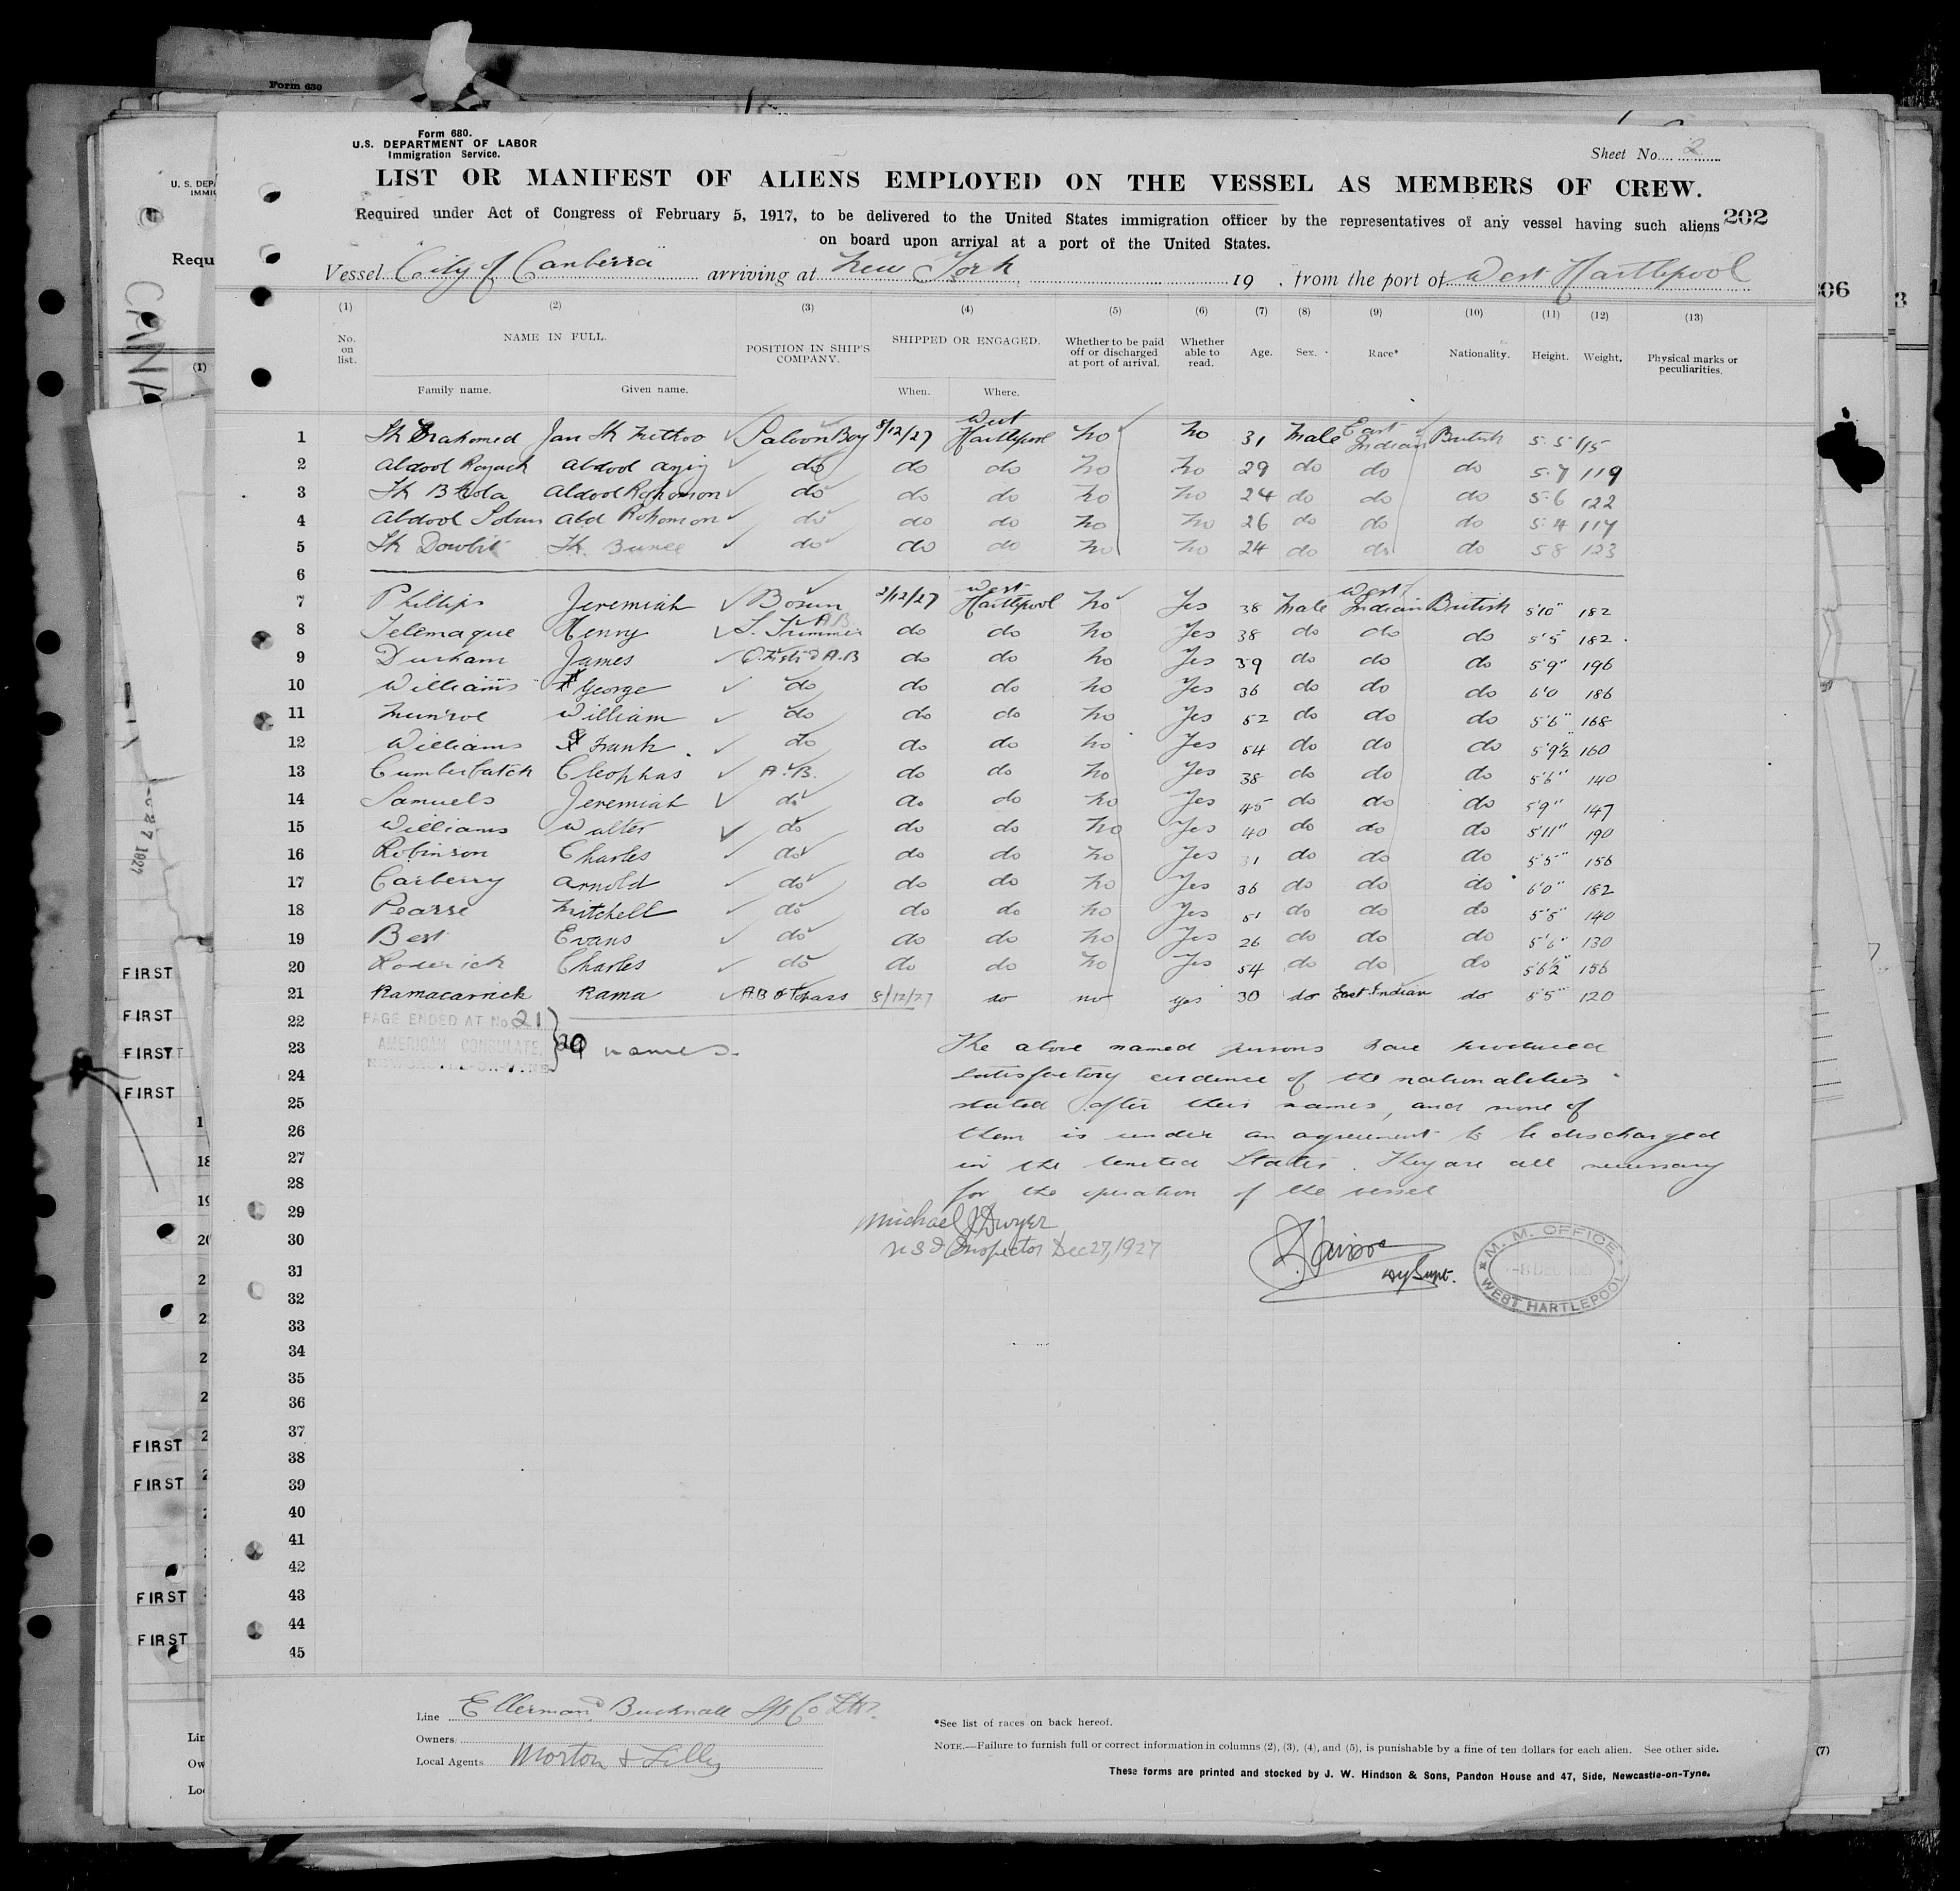 Form 680
Form 680.
U.S. DEPARTMENT OF LABOR
Immigration Service.
Sheet No. 2
LIST OR MANIFEST OF ALIENS EMPLOYED ON THE VESSEL AS MEMBERS OF CREW.
Required under Act of Congress of February 5, 1917, to be delivered to the United States immigration officer by the representatives of any vessel having such aliens
202
on board upon arrival at a port of the United States.
Vessel City of Canberra arriving at New York, 19 . from the port of West Hartlepool
(1) (2) (3) (4) (5) (6) (7) (8) (9) (10) (11) (12) (13)
No. on list. NAME IN FULL. POSITION IN SHIP'S COMPANY. SHIPPED OR ENGAGED. Whether to be paid off or discharged at port of arrival. Whether able to read. Age. Sex. Race* Nationality. Height. Weight. Physical marks or peculiarities.
Family name. Given name. When. Where.
1 Sk Mahomed Jan Sk Mithoo Saloon Boy 8/12/27 West Hartlepool No No 31 Male East Indian British 5.5 115
2 Abdool Rajack Abdool Aziz do do do No No 29 do do do 5.7 119
3 Sk Bhola Abdool Rohomon do do do No No 24 do do do 5.6 122
4 Abdool Sobun Abd Rohomon do do do No No 26 do do do 5.4 117
5 Sk Dowlit Sk. do do do No No 24 do do do 5 8 123
6
7 Phillips Jeremiah Bosun 2/12/27 West Hartlepool No Yes 38 Male West Indian British 5'10" 182
8 Telemaque Henry A.B. S. Trimmer do do No Yes 38 do do do 5'5" 182
9 Durham James A.B do do No Yes 39 do do do 5'9" 196
10 Williams George do do do No Yes 36 do do do 6'0 186
11 Munroe William do do do No Yes 52 do do do 5'6" 168
12 Williams Frank do do do No Yes 54 do do do 5'9½" 160
13 Cumberbatch Cleophas A.B. do do No Yes 38 do do do 5'6" 140
14 Samuels Jeremiah do do do No Yes 45 do do do 5'9" 147
15 Williams Walter do do do No Yes 40 do do do 5'11" 190
16 Robinson Charles do do do No Yes 31 do do do 5'5" 156
17 Carberry Arnold do do do No Yes 36 do do do 6'0" 182
18 Pearse Mitchell do do do No Yes 51 do do do 5'5" 140
19 Best Evans do do do No Yes 26 do do do 5'6" 130
20 Roderick Charles do do do No Yes 54 do do do 5'6½" 156
21 Ramacarrick Rama A.B & Topass 8/12/27 do no yes 30 do East Indian do 5'5" 120
22 PAGE ENDED AT No 21
23 AMERICAN CONSULATE, 20 names. The above named persons have produced
24 satisfactory evidence of the nationalities
25 stated after their names, and none of
26 them is under an agreement to be discharged
27 in the United States. They are all necessary
28 for the operation of the vessel
29 Michael J Dwyer
30 U S I Inspector Dec 27, 1927
31 Dy Supt.
M. M. OFFICE
8 DEC 1927
WEST HARTLEPOOL
32
33
34
35
36
37
38
39
40
41
42
43
44
45
Line Ellerman Bucknall S/s Co Ltd.
Owners
Local Agents Morton & Lilly
*See list of races on back hereof.
NOTE.—Failure to furnish full or correct information in columns (2), (3), (4), and (5), is punishable by a fine of ten dollars for each alien. See other side.
These forms are printed and stocked by J. W. Hindson & Sons, Pandon House and 47, Side, Newcastle-on-Tyne.
FIRST
FIRST
FIRST
FIRST
FIRST
FIRST
FIRST
FIRST
(7)